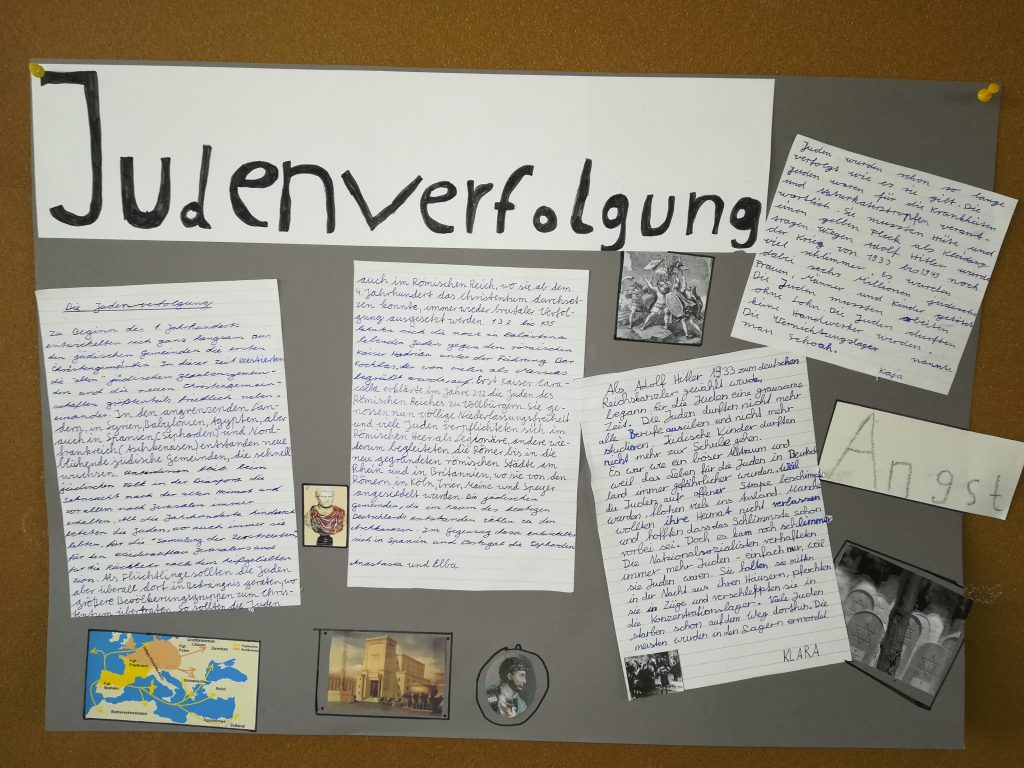 Judenverfolgung
Die Judenverfolgung
Zu Beginn des 1. Jahrhunderts
entwickelten sich ganz langsam aus
den jüdischen Gemeinden die ersten
Christengemeinden. In dieser Zeit existierten
die alten jüdischen Glaubensgemein-
den und neuen Christengemein-
schaften größtenteils friedlich neben-
einander. In den angrenzenden Län-
dern, in Syrien, Babylonien, Ägypten, aber
auch in Spanien (Sepharden) und Nord-
frankreich (Aschkenasen) entstanden neue
blühende jüdische Gemeinden, die schnell
wuchsen. blieb beim
jüdischen Volk in der Diaspora die
Sehnsucht nach der alten Heimat und
vor allem nach Jerusalem immer
erhalten. All die Jahrhunderte hindurch
beteten die Juden, wo auch immer sie
lebten, für die "Sammlung der Zerstreuten",
für den Wiederaufbau Jerusalems und
für die Rückkehr nach dem heißgeliebten
Zion. Als Flüchtlinge sollten die Juden
aber überall dort in Bedrängnis geraten, wo
größere Bevölkerungsgruppen zum Chris-
tentum übertraten. So sollte die Juden
auch im Römischen Reich, wo sie ab dem
4. Jahrhundert das Christentum durchset-
zen konnte, immer wieder brutaler Verfol-
gung ausgesetzt werden. 132 bis 135
sich die noch in Palästina
lebenden Juden gegen den römischen
Kaiser Hadrian unter der Führung Bar
Kochbas, der von vielen als Messias
begrüßt wurde auf. Erst Kaiser Cara-
calla erklärte im Jahre 212 die Juden des
Römischen Reiches zu Vollbürgern. Sie ge-
nossen nun völlige Niederlassungsfreiheit
und viele Juden verpflichteten sich im
Römischen Heer als Legionäre, andere wie-
derum begleiteten die Römer bis in die
neu gegründeten römischen Städte am
Rhein und in Britannien, wo sie von den
Römern in Köln, Trier, Mainz und Speyer
angesiedelt wurden. Die jüdischen
Gemeinden, die im Raum des heutigen
Deutschlands entstanden zählen zu den
Aschkenasen. Im Gegenzug dazu entwickelten
sich in Spanien und Portugal die Sepharden
Anastasia und Elba
Juden wurden schon so lange
verfolgt wie es sie gilt. Die
Juden waren für die Krankheiten
und Naturkatastropfen verant-
wortlich. Sie mussten Hüte und
einen gelben Fleck als Kleidung
tragen. Wegen Adolf Hitler wurde
der Krieg von 1933 bis 1945 noch
viel schlimmer. Es wurden
dabei sechs Millionen Judische
Frauen, Männer und Kinder getötet.
Die Juden mussten arbeiten
ohne Lohn. Die Juden durften
keine Handwerker werden.
Die Vernichtungslager nannte
man Schoah.
Kaja
Als Adolf Hitler 1933 zum deutschen
Reichskanzler gewählt wurde,
begann für die Juden eine grausame
Zeit. Die Juden durften nicht mehr
alle Berufe ausüben und nicht mehr
studieren. Jüdische Kinder durften
nicht mehr zur Schule gehen.
Es war wie ein böser Alltraum und
weil das Leben für die Juden in Deutsch-
land immer gefährlicher wurden, weil
die Juden auf offener Straße beschimpft
wurden, flohen viele ins Ausland. Manche
wollten ihre Heimat nicht verlassen
und hofften, dass das Schlimmste schon
vorbei sei. Doch es kam noch schlimmer.
Die Nationalsozialisten verhafteten
immer mehr Juden - einfach nur, weil
sie Juden waren. Sie holten sie mitten
in der Nacht aus ihren Häusern, pferchten
sie in Züge und verschleppten sie in
die Konzentrationslager. Viele Juden
starben schon auf dem Weg dorthin. Die
meisten wurden in den Lagern ermordet
KLARA
Angst
Großfürstentum
Litauen
Kgr.
Polen
Zarenreich
Kgr.
Frankreich
Kgr.
Spanien
Osmanisches
Reich
Barbareskenstaaten
Ägyptisches
Sultanat